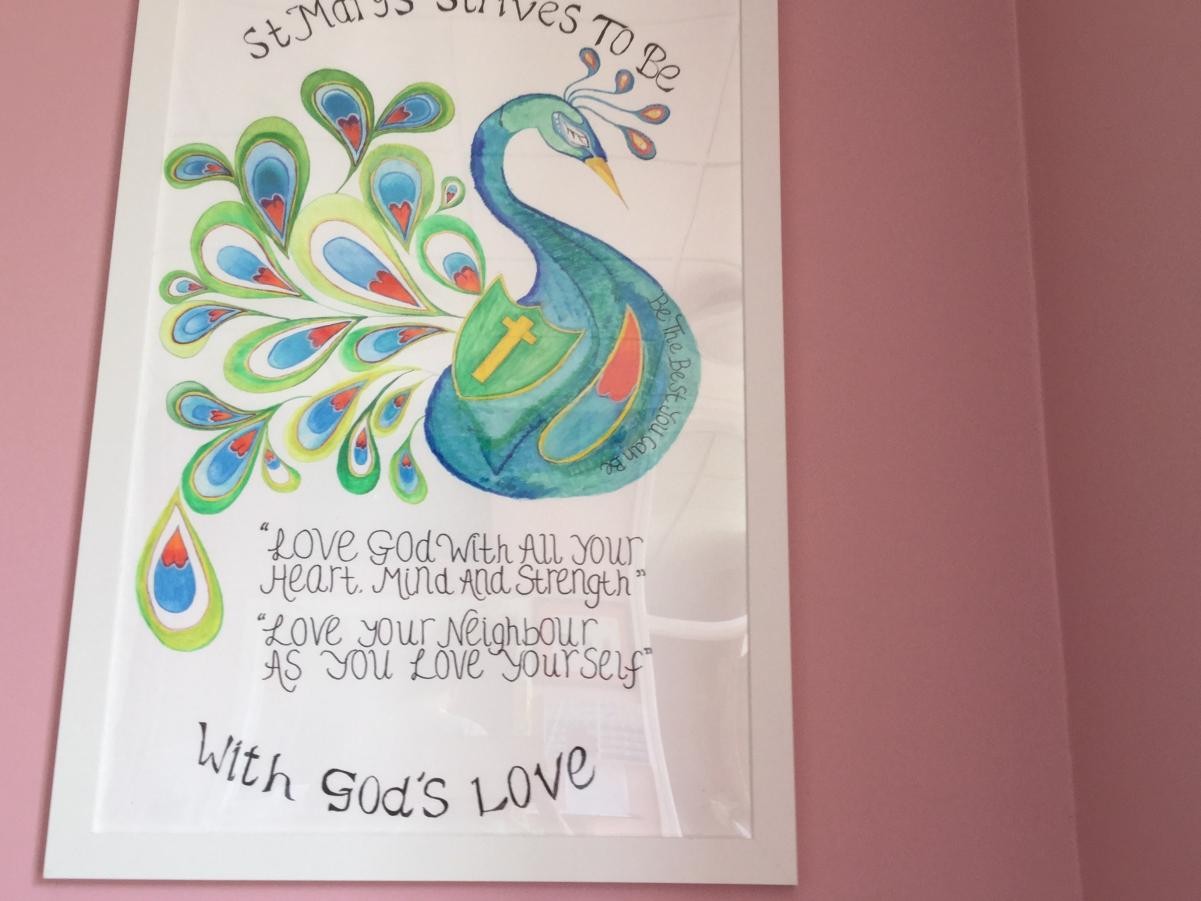 St Marys Strives To Be
Be The Best You Can Be
"Love God With All Your
Heart. Mind And Strength"
"Love your Neighbour
As You Love Yourself"
With God's Love